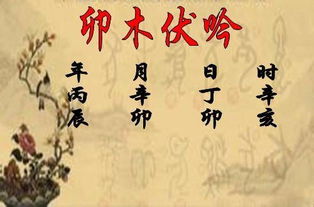 卯木伏吟
年丙辰
月辛卯
日丁卯
时辛亥